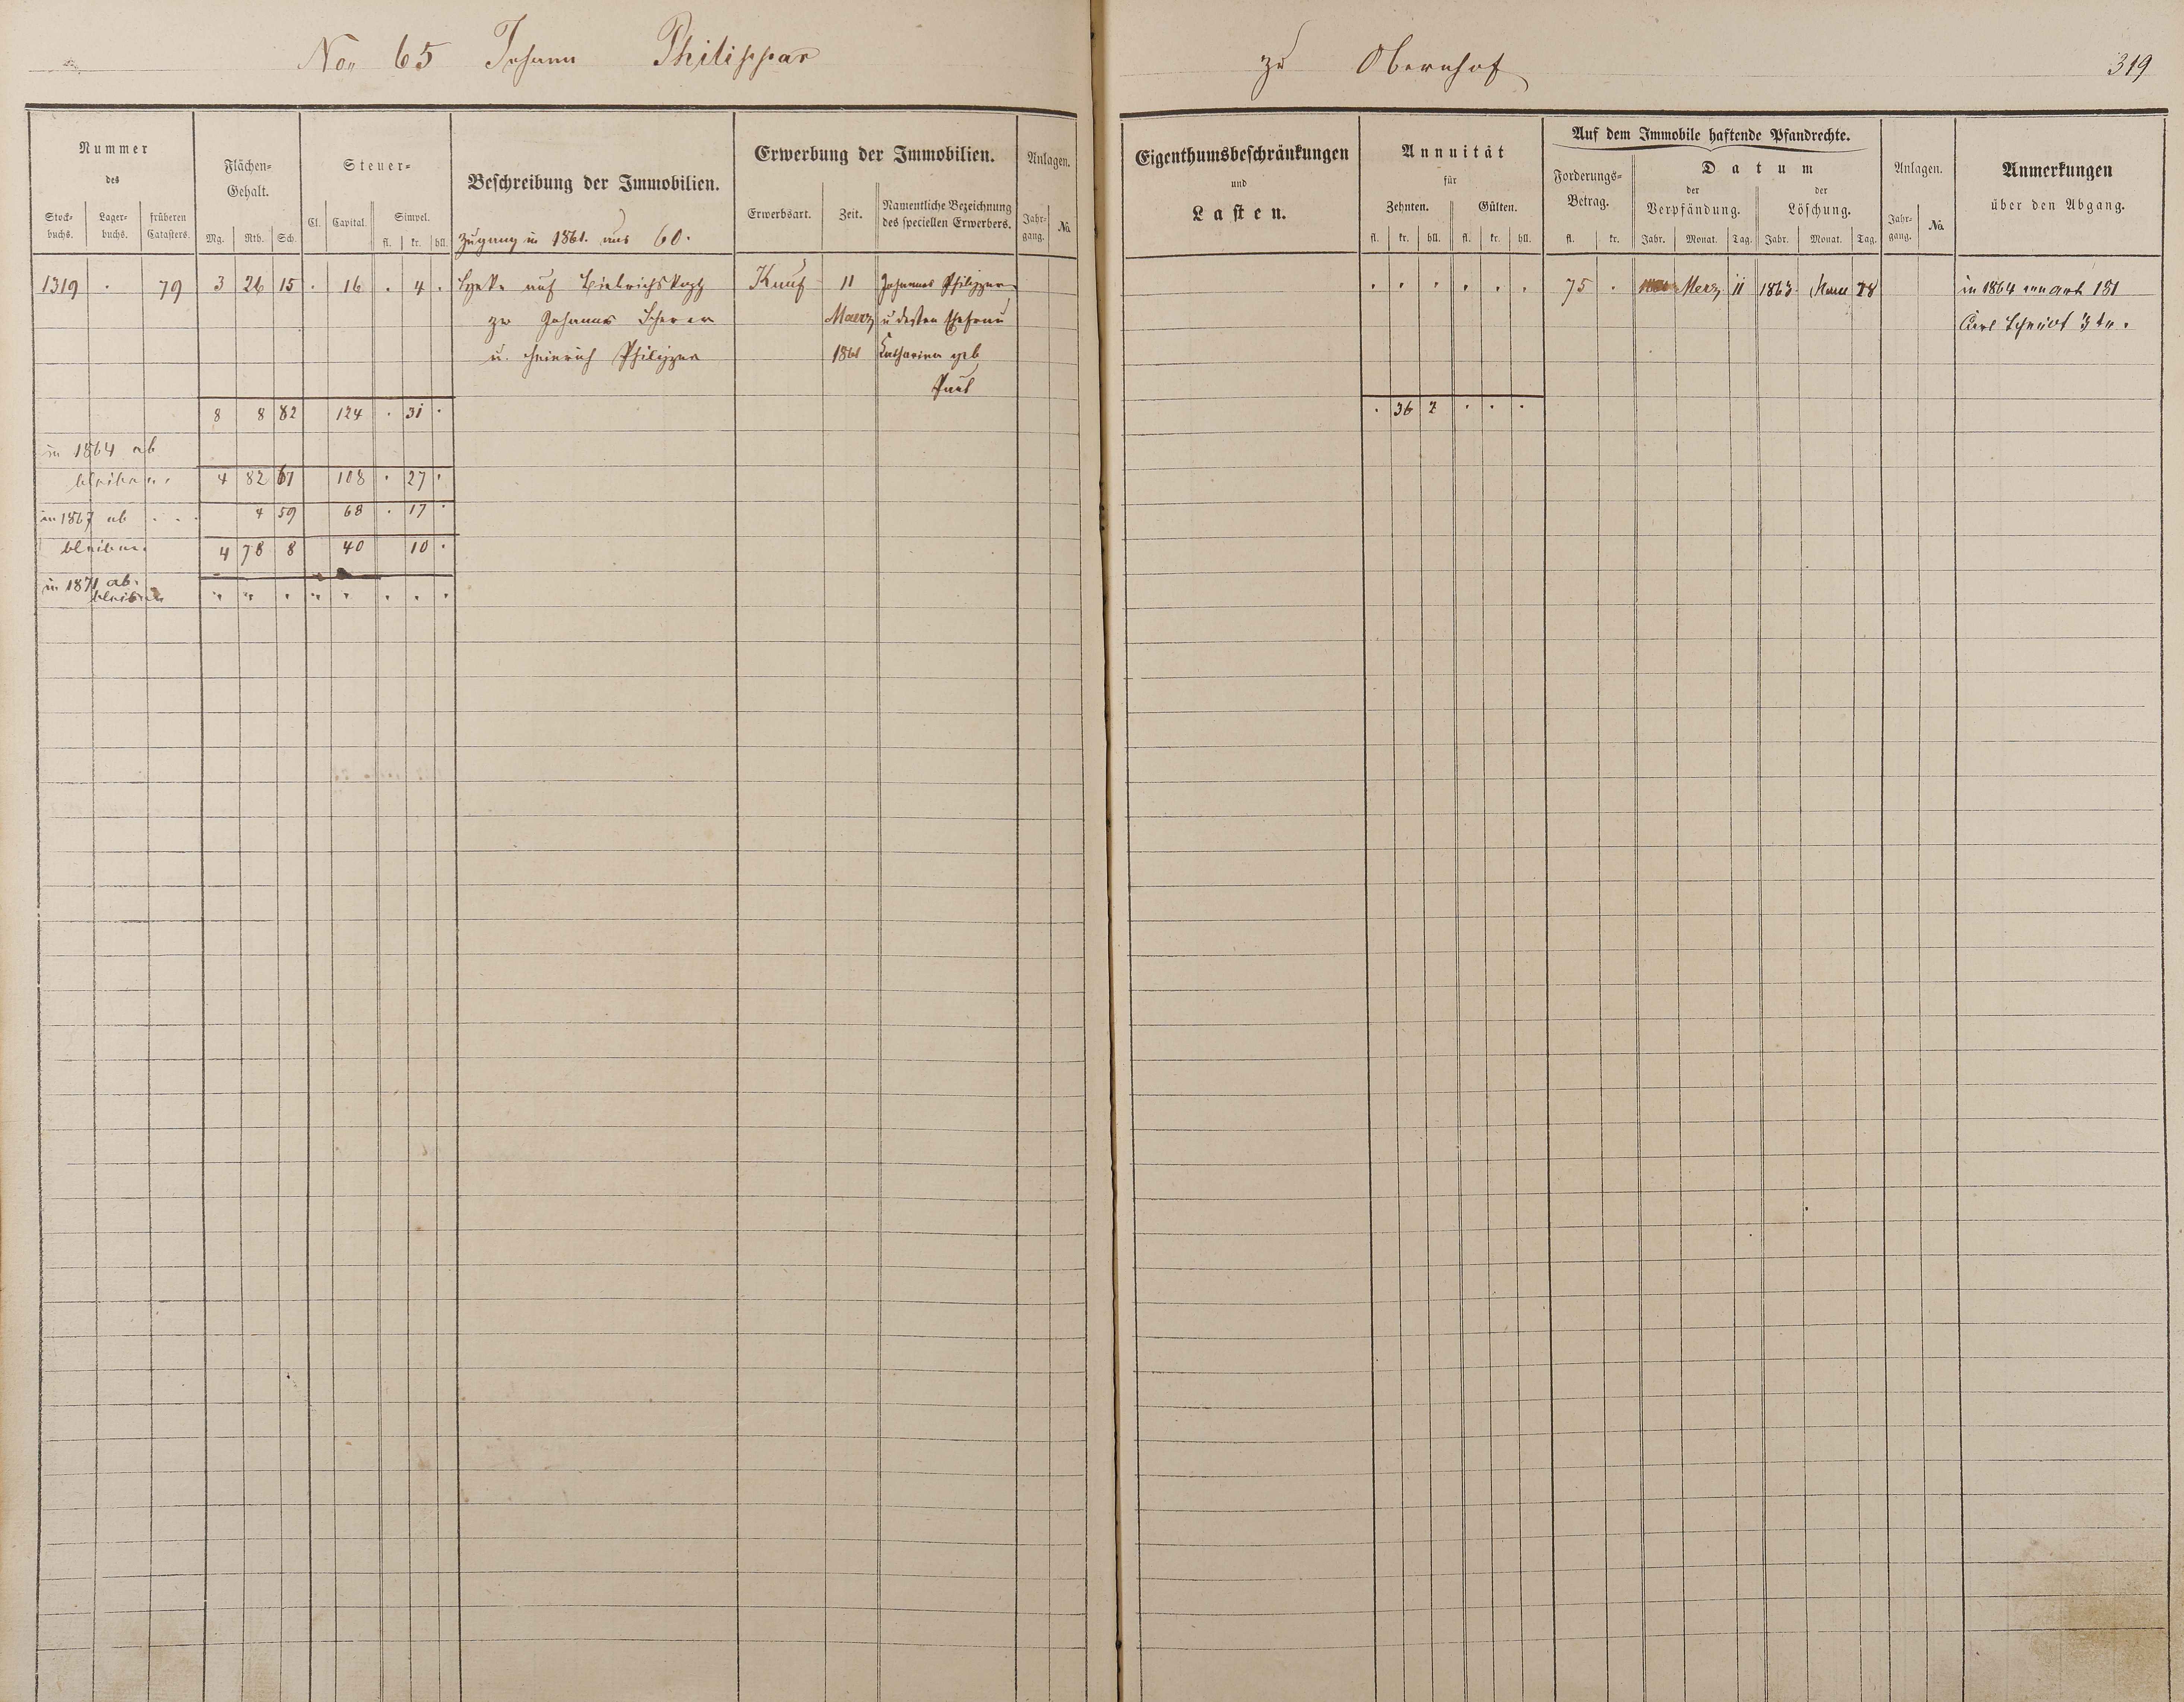 No 65 Johann Philippar zu Obernhof 319
Nummer
des
Stock-
buchs.
Lager-
buchs.
früheren
Catasters.
Flächen-
Gehalt.
Mg. Rth. Sch.
Steuer-
Cl. Capital.
Simpel.
fl. kr. hll.
Beschreibung der Immobilien.
Zugang in 1861. aus 60.
Erwerbung der Immobilien.
Erwerbsart. Zeit.
Namentliche Bezeichnung
des speciellen Erwerbers.
Anlagen.
Jahr-
gang. No.
Eigenthumsbeschränkungen
und
Lasten.
Annuität
für
Zehnten. Gülten.
fl. kr. hll. fl. kr. hll.
Auf dem Immobile haftende Pfandrechte.
Forderungs-
Betrag.
fl. kr.
Datum
der
Verpfändung.
der
Löschung.
Jahr. Monat. Tag. Jahr. Monat. Tag.
Anlagen.
Jahr-
gang. No.
Anmerkungen
über den Abgang.
1319 . 79 3 26 15 . 16 . 4 . auf Kauf 11 Johannes Philippar . . . . . . 75 . Merz 11 1863 28 in 1864 an art 181
zw Johannes Scherer Maerz u dessen Ehefrau Carl
u. Heinrich Philippar 1861 Catharina geb
Paul
8 8 82 124 . 31 . . 36 2 . . .
in 1864 ab
bleiben . 4 82 67 108 . 27 .
in 1867 ab . . . 4 59 68 . 17 .
bleiben. 4 78 8 40 10 .
in 1871 ab.
bleiben " " . " . . . .